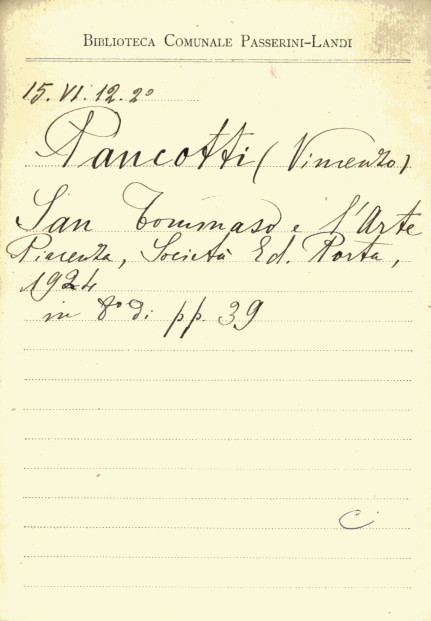 BIBLIOTECA COMUNALE PASSERINI-LANDI
15. VI. 12. 2º
Pancotti (Vincenzo)
San Tommaso e l'Arte
Piacenza, Società Ed. Porta,
1924
in 8º di pp. 39
C